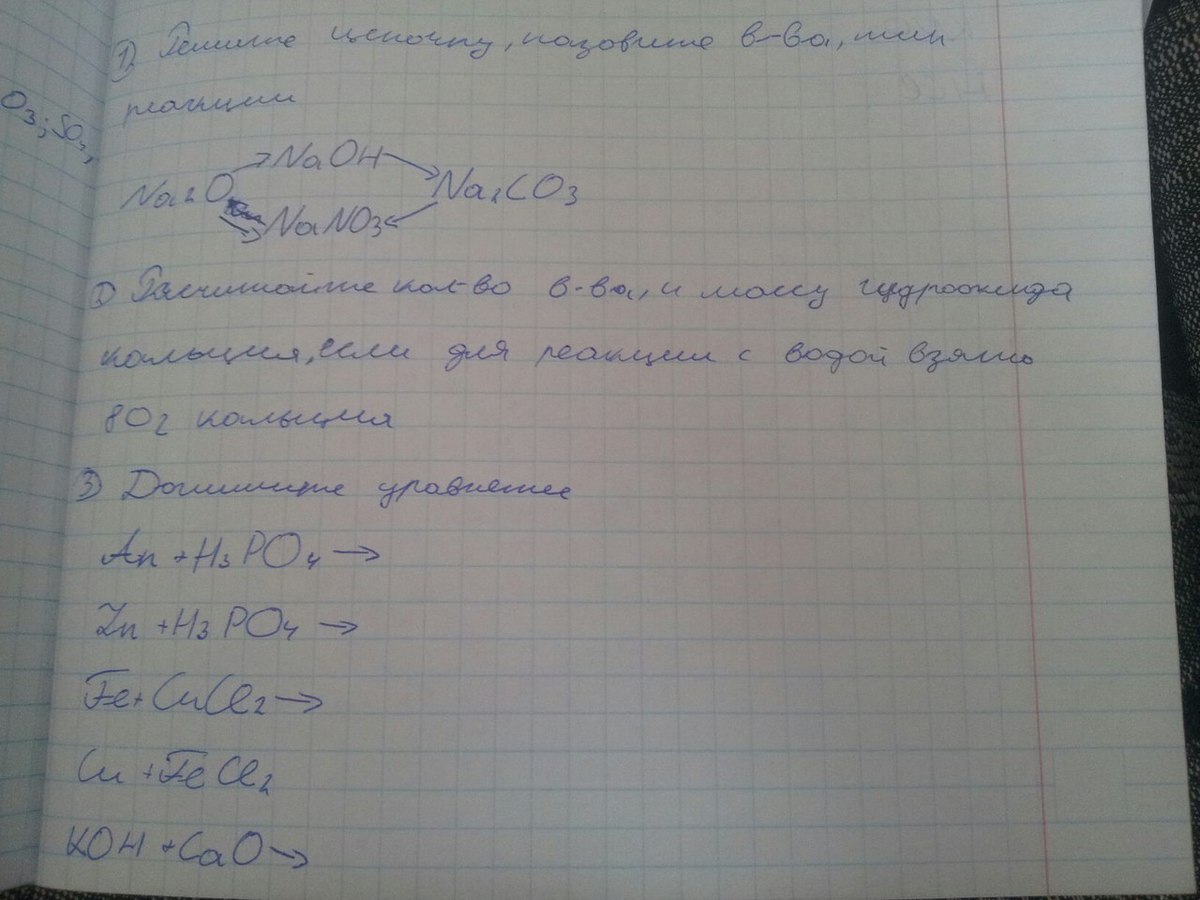 O₃; SO₄,
1) Решите цепочку, назовите в-ва, тип
реакции
NaOH
Na₂O Na₂CO₃
NaNO₃
2) Расчитайте кол-во в-ва, и массу гидроокида
кальция, если для реакции с водой взято
80г кальция
3) Допишите уравнение
An + H₃PO₄ →
Zn + H₃PO₄ →
Fe + CuCl₂ →
Cu + FeCl₂
KOH + CaO →